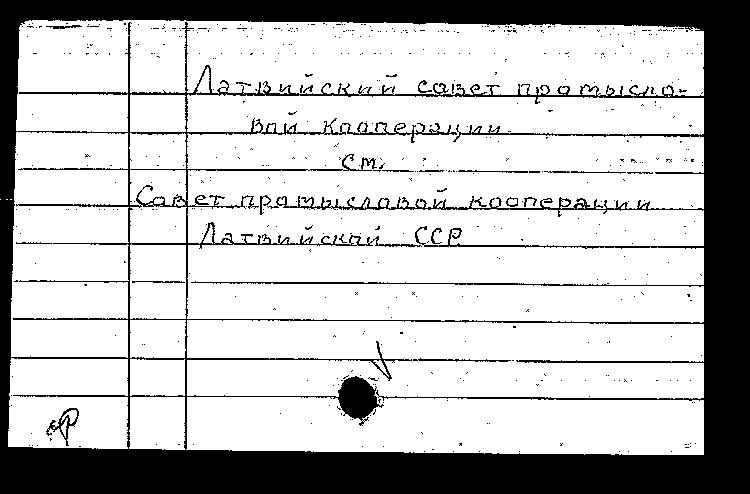 Латвийский совет промысло-
вой кооперации
см.
Совет промысловой кооперации
Латвийской ССР